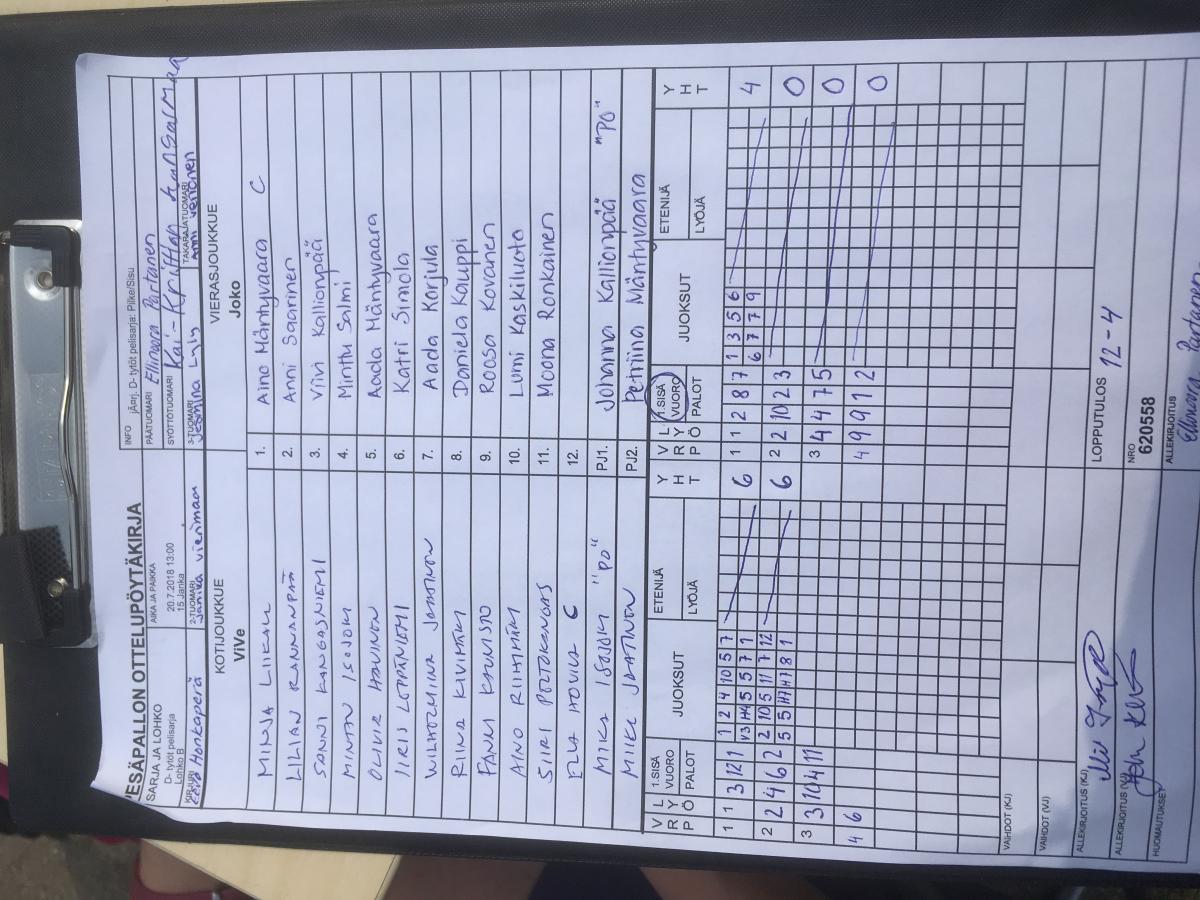 PESÄPALLON OTTELUPÖYTÄKIRJA
SARJA JA LOHKO
D- tytöt pelisarja
Lohko B
AIKA JA PAIKKA
20.7.2018 13:00
15 Janka
INFO jÄrj. D- tytöt pelisarja: Pilke/Sisu
PÄÄTUOMARI Ellinoora Partanen
SYÖTTÖTUOMARI Kai-Kristian
KIRJURI
Eeva Honkaperä
2-TUOMARI
Janika Vierimaa
3-TUOMARI
Jasmina Lyly
TAKARAJATUOMARI
Anni
KOTIJOUKKUE
ViVe
VIERASJOUKKUE
Joko
MINJA LIIKALA 1. Aino Mäntyvaara C
LILIAN RANNANPÄÄ 2. Anni Saarinen
SONNI KANGASNIEMI 3. Viivi Kallionpää
MINTAN ISOJOKI 4. Minttu Salmi
OLIVIA HAUINEN 5. Aada Mäntyvaara
IIRIS LOPPANIEMI 6. Katri Simola
WILHELMIINA JAATINEN 7. Aada Korjula
RIINA KIVIMÄKI 8. Daniela Kauppi
FANNI KAUNISTO 9. Roosa Kovanen
AINO RIIHIMÄKI 10. Lumi Kaskiluoto
SIIRI 11. Moona Ronkainen
ELLA HOVILA C 12.
MIKA ISOJOKI "PO" PJ1. Johanna Kallionpää "PO"
MIIKE JAATINEN PJ2. Petriina Mäntyvaara
V R P L Y Ö 1.SISÄ VUORO PALOT JUOKSUT ETENIJÄ LYÖJÄ Y H T V R P L Y Ö 1.SISÄ VUORO PALOT JUOKSUT ETENIJÄ LYÖJÄ Y H T
1 1 3 12 1 1 2 4 10 5 7 6 1 1 2 8 7 1 3 5 6 4
V3 H4 5 5 7 1 6 7 7 9
2 2 4 6 2 2 10 5 11 7 12 6 2 2 10 2 3 0
5 5 H7 H7 8 1
3 3 10 4 11 3 4 4 7 5 0
4 6 4 9 9 1 2 0
VAIHDOT (KJ)
VAIHDOT (VJ)
ALLEKIRJOITUS (KJ)
LOPPUTULOS 12-4
ALLEKIRJOITUS (VJ)
NRO
620558
HUOMAUTUKSET
ALLEKIRJOITUS
Ellinoora Partanen